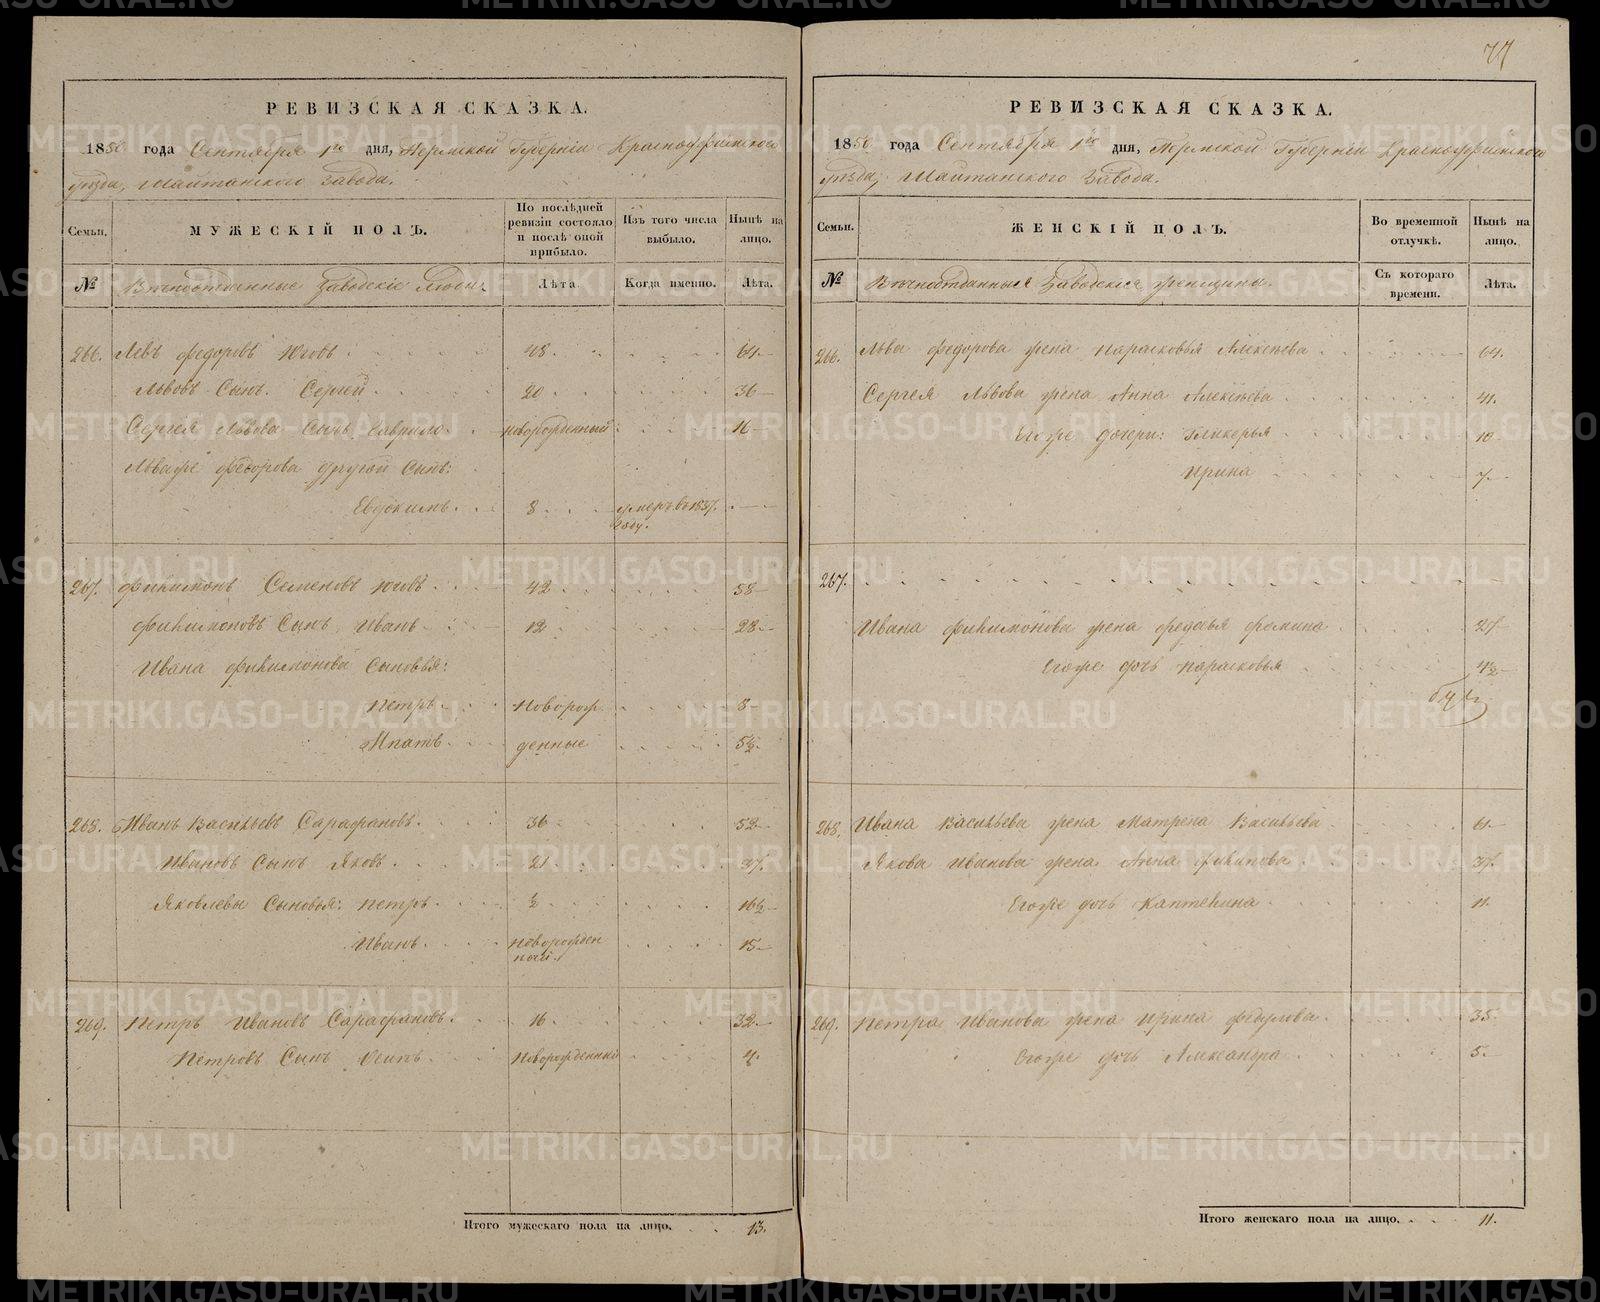 77
РЕВИЗСКАЯ СКАЗКА.
1850 года Сентября 1го дня, Пермской Губерніи Красноуфимскаго
уѣзда, Шайтанскаго завода.
Семьи.
МУЖЕСКІЙ ПОЛЪ.
По послѣдней ревизіи состояло и послѣ оной прибыло.
Изъ того числа выбыло.
Нынѣ на лицо.
№
Вѣчноотданные Заводскіе Люди.
Лѣта.
Когда именно.
Лѣта.
266. Левъ Федоровъ Юговъ 48. 64
Львовъ Сынъ. Сергей 20 36
Сергея Львова Сынъ Гаврило новорожденный 16
Льва же Федорова другой Сынъ:
Евдокимъ 8 умеръ въ 1837 году.
267. Филимонъ Семеновъ Юговъ 42 58
Филимоновъ Сынъ Иванъ 12 28
Ивана Филимонова Сыновья:
Петръ Новорож 8
Ипатъ денные 5½
268. Иванъ Васильевъ Сарафановъ 36 52
Ивановъ Сынъ Яковъ 21 37.
Яковлевы Сыновья: Петръ ½ 16½
Иванъ Новорожденной 15
269. Петръ Ивановъ Сарафановъ 16 32
Петровъ Сынъ Осипъ Новорожденный
Итого мужескаго пола на лицо. 13.
РЕВИЗСКАЯ СКАЗКА.
1850 года Сентября 1го дня, Пермской Губерніи Красноуфимскаго
уѣзда, Шайтанскаго завода.
Семьи.
ЖЕНСКІЙ ПОЛЪ.
Во временной отлучкѣ.
Нынѣ на лицо.
№
Вѣчноотданныя Заводскія женщины.
Съ котораго времени.
Лѣта.
266. Льва Федорова жена Парасковья Алексѣева 64
Сергея Львова жена Анна Алексѣева 41
Его же дочери: Гликерья 10
Ирина 7
267.
Ивана Филимонова жена Федосья Фомина 27
Его же дочь Парасковья 4½
268. Ивана Васильева жена Матрена Васильева 61
Якова Иванова жена Анна Филипова 37
Его же дочь Каптелина 11
269. Петра Иванова жена Ирина Федулова 35
Его же дочь Александра 5.
Итого женскаго пола на лицо. 11.
METRIKI.GASO-URAL.RU